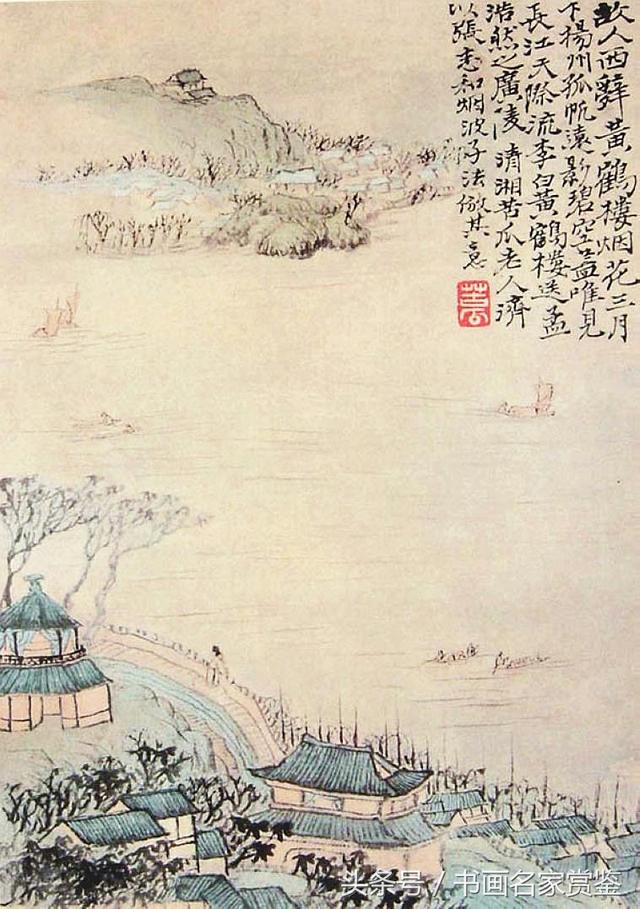 故人西辭黃鶴樓烟花三月
下揚州孤帆遠影碧空盡唯見
長江天際流李白黃鶴樓送孟
浩然之廣陵 清湘苦瓜老人濟
以張志和烟波子法倣其意
头条号 / 书画名家赏鉴